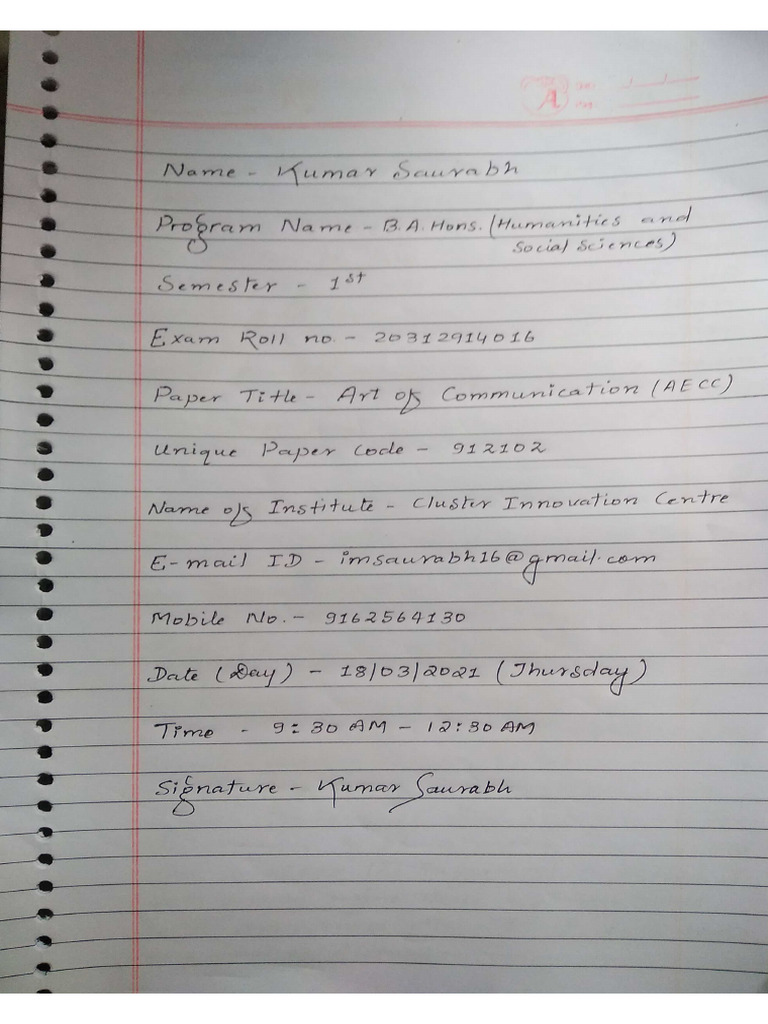 A
Name - Kumar Saurabh
Program Name - B.A. Hons. (Humanities and
Social Sciences)
Semester - 1st
Exam Roll no. - 20312914016
Paper Title - Art of Communication (AECC)
Unique Paper Code - 912102
Name of Institute - Cluster Innovation Centre
E-mail ID - imsaurabh16@gmail.com
Mobile No. - 9162564130
Date (Day) - 18/03/2021 (Thursday)
Time - 9:30 AM - 12:30 AM
Signature - Kumar Saurabh